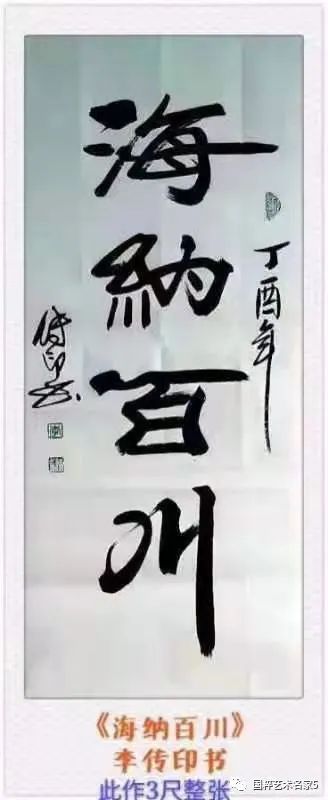 海納百川
丁酉年
傳印书
《海纳百川》
李传印书
此作3尺整张
国粹艺术名家5